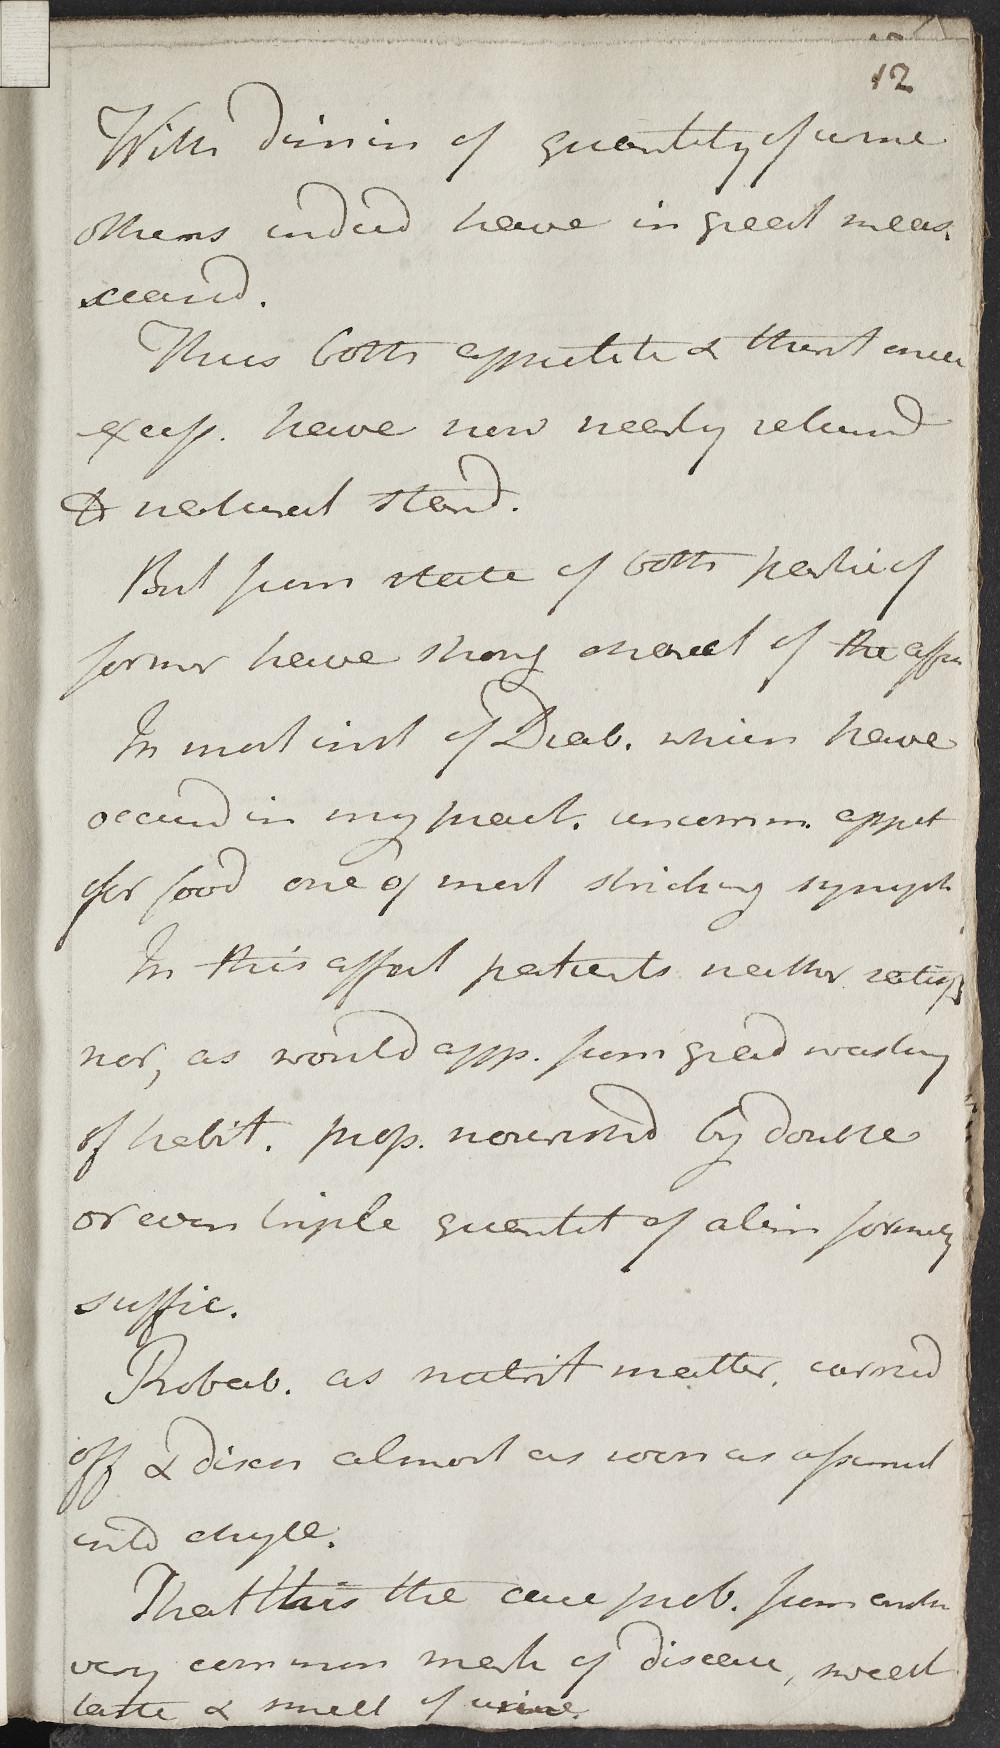 12
With dimin of quantity of urine
others indeed have in great meas
ceased.
Thus both appetite & thirst once
excess. have now nearly returnd
to natural stand.
But from state of both partic of
former have strong charact of the affn
In most inst of Diab. which have
occurd in my pract. uncomm. appet
for food one of most striking sympt
In this affect patients neither satisf
nor, as would app. from great wasting
of habit. prop. nourishd by double
or even triple quantit of alim formerly
suffic.
Probab. as nutrit matter. carried
off & disch almost as soon as assumd
into chyle.
That this the case prob. from anoth
very common mark of disease, sweet
taste & smell of urine.